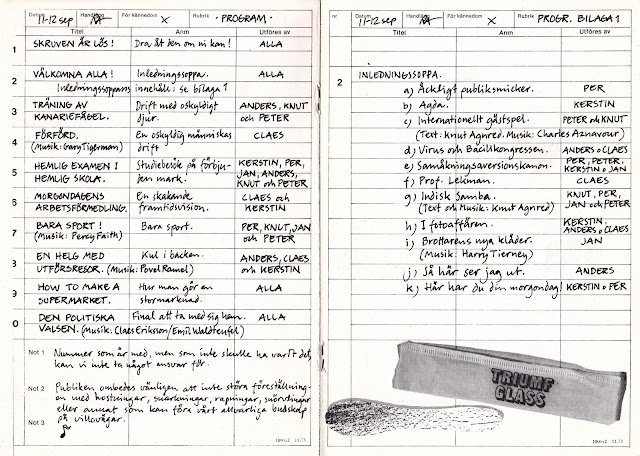 Datum 11-12 sep Handlägg För kännedom X Rubrik • PROGRAM •
Titel Anm Utföres av
1 SKRUVEN ÄR LÖS! Dra åt den om ni kan! ALLA
2 VÄLKOMNA ALLA! Inledningssoppa. ALLA
Inledningssoppans innehåll: se bilaga 1
3 TRÄNING AV Drift med oskyldigt ANDERS, KNUT
KANARIEFÅGEL. djur. och PETER
4 FÖRFÖRD. En oskyldig människas CLAES
(Musik: Gary Tigerman) drift
5 HEMLIG EXAMEN I Studiebesök på förbju- KERSTIN, PER,
HEMLIG SKOLA. den mark. JAN, ANDERS,
KNUT och PETER
6 MORGONDAGENS En skakande CLAES och
ARBETSFÖRMEDLING. framtidsvision. KERSTIN
7 BARA SPORT! Bara sport. PER, KNUT, JAN
(Musik: Percy Faith) och PETER
8 EN HELG MED Kul i backen. ANDERS, CLAES
UTFÖRSRESOR. (Musik: Povel Ramel) och KERSTIN
9 HOW TO MAKE A Hur man gör en ALLA
SUPERMARKET. stormarknad.
0 DEN POLITISKA Final att ta med sig hem. ALLA
VALSEN. (Musik: Claes Eriksson/Emil Waldteufel)
Not 1 Nummer som är med, men som inte skulle ha varit det,
kan vi inte ta något ansvar för.
Not 2 Publiken ombedes vänligen att inte störa föreställning-
en med hostningar, snarkningar, rapningar, snörvlingar
eller annat som kan föra vårt allvarliga budskap
på villovägar.
Not 3
1000x2 11.75
nr Datum 11-12 sep Handlägg För kännedom X Rubrik PROGR. BILAGA 1
Titel Anm Utföres av
2 INLEDNINGSSOPPA.
a) Äckligt publiksmicker. PER
b) Agda. KERSTIN
c) Internationellt gästspel. PETER och KNUT
(Text: Knut Agnred. Musik: Charles Aznavour)
d) Virus och Bacillkongressen. ANDERS o CLAES
e) Samåkningsaversionskanon. PER, PETER, KERSTIN o JAN
f) Prof. Lekman. CLAES
g) Indisk Samba. KNUT, PER,
(Text och Musik: Knut Agnred) JAN och PETER
h) I fotoaffären. KERSTIN, ANDERS o CLAES
i) Brottarens nya kläder. JAN
(Musik: Harry Tierney)
j) Så här ser jag ut. ANDERS
k) Hår har du din morgondag! KERSTIN o PER
TRIUMF
GLASS
1000x2 11.75